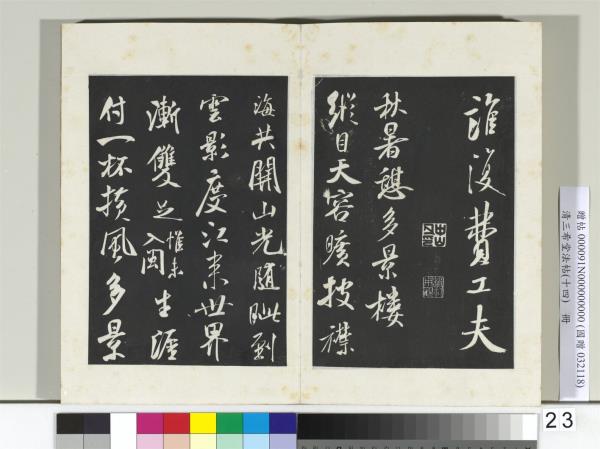 誰復費工夫
秋暑憩多景樓
縱目天容曠披襟
海共開山光隨眦到
雲影度江来世界
漸雙足惟未入閩生涯
付一杯橫風多景
贈帖 000091N000000000 (國贈 032118)
清三希堂法帖(十四) 冊
23